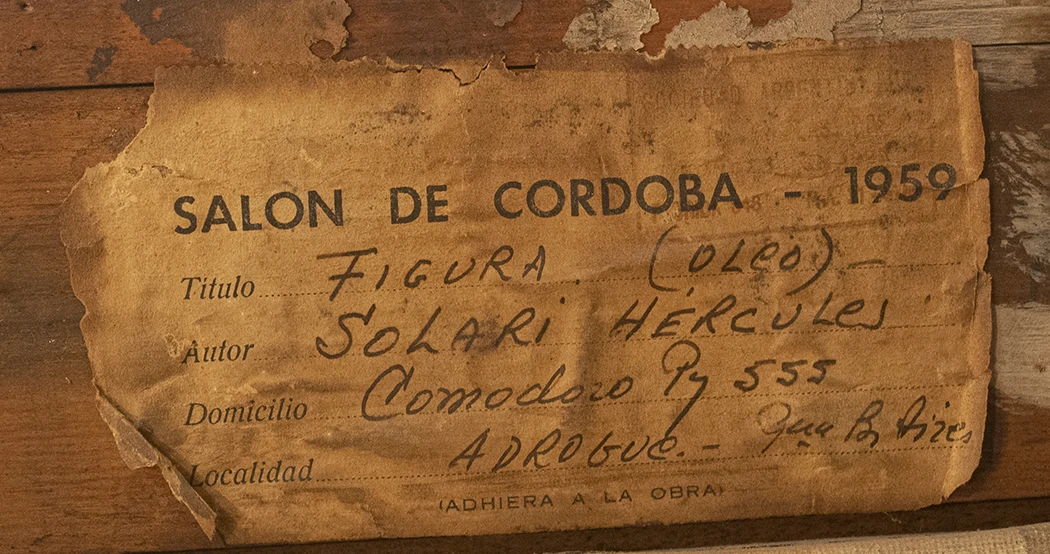 SALON DE CORDOBA - 1959
Título FIGURA. (OLeo) —
Autor SOLARi HÉRCULeS
Domicilio Comodoro Py 555
Localidad ADROGUe. - Bs Aires
(ADHIERA A LA OBRA)